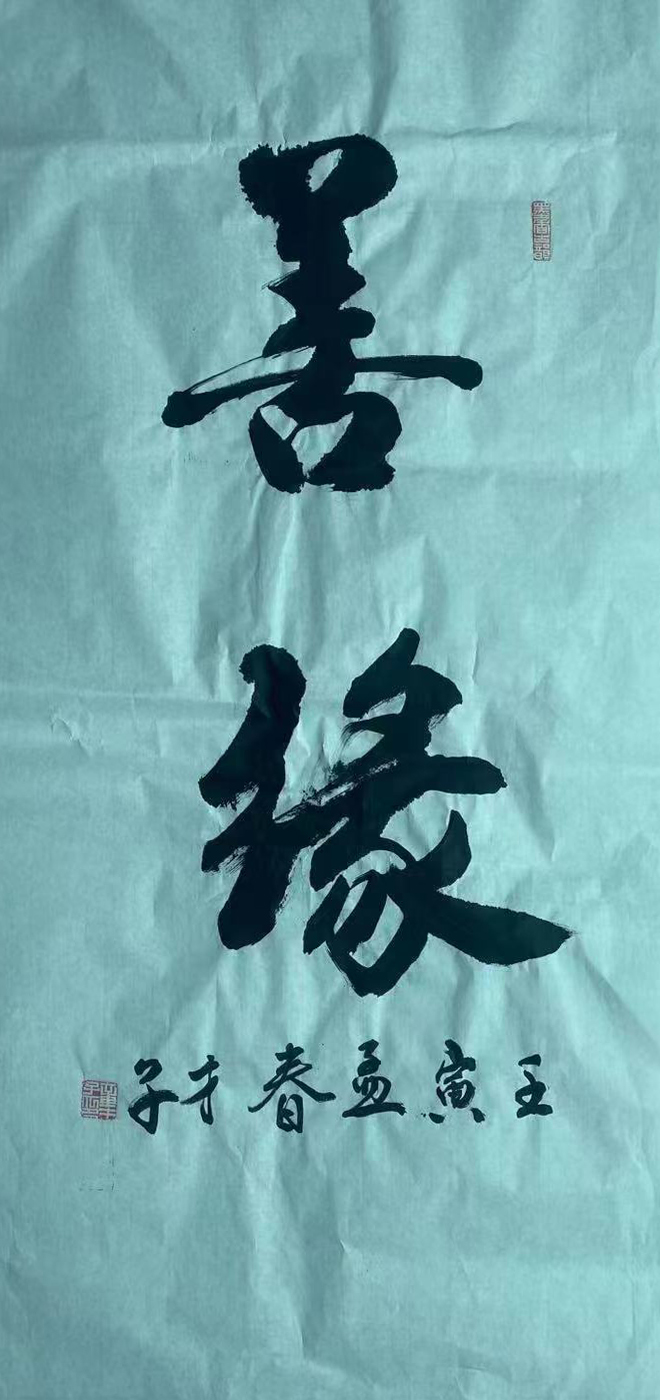 善
缘
壬寅孟春才子